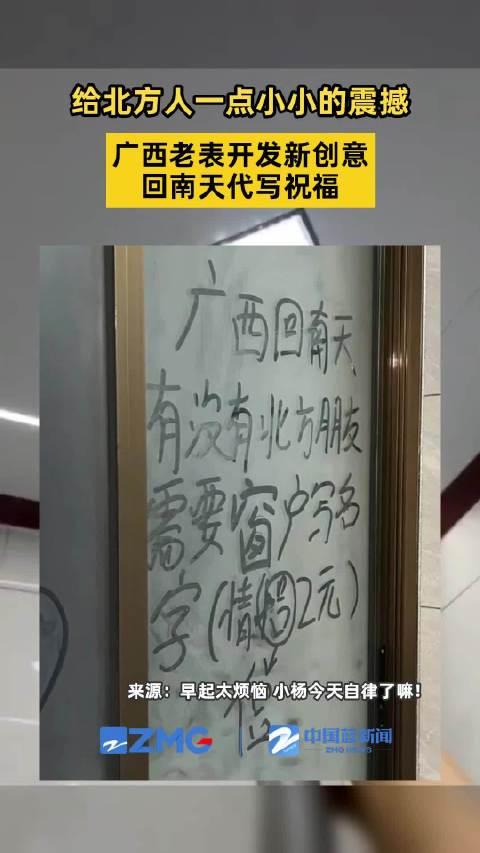 给北方人一点小小的震撼
广西老表开发新创意
回南天代写祝福
广西回南天
有没有北方朋友
需要窗户写名
字(情侣2元)
位
来源：早起太烦恼 小杨今天自律了嘛!
ZMG
中国蓝新闻
ZMG NEWS